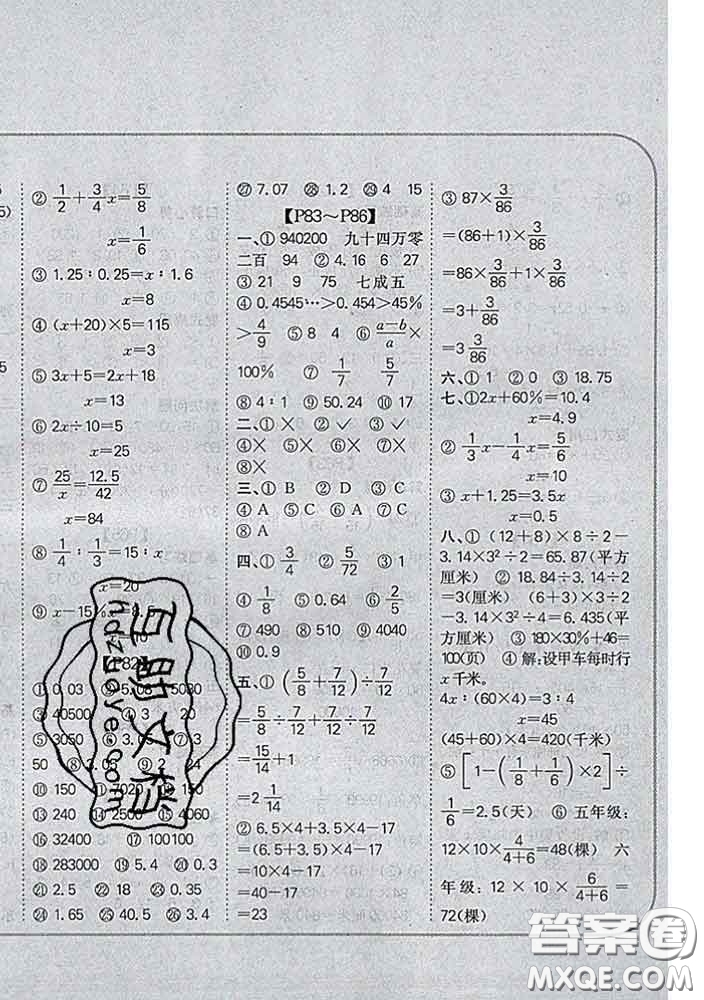 ② 1/2+3/4x=5/8
x=1/6
③ 1.25∶0.25=x∶1.6
x=8
④ (x+20)×5=115
x=3
⑤ 3x+5=2x+18
x=13
⑥ 2x÷10=5
x=25
⑦ 25/x=12.5/42
x=84
⑧ 1/4∶1/3=15∶x
x=20
⑨ x-15%x=8.5
① 0.03 ② 5.08 5080
③ 40500 ④ 3 20
⑤ 3050 ⑥ 3.05 ⑦ 3
50 ⑧ 2.05 ⑨ 2 24
⑩ 150 ⑪ 7020 ⑫ 150
⑬ 240 ⑭ 2500 ⑮ 4060
⑯ 32400 ⑰ 100100
⑱ 283000 ⑲ 5.4 ⑳ 0.3
㉑ 2.5 ㉒ 18 ㉓ 0.35
㉔ 1.65 ㉕ 40.5 ㉖ 3.4
㉗ 7.07 ㉘ 1.2 ㉙ 4 15
【P83～P86】
一、① 940200 九十四万零
二百 94 ② 4.16 6 27
③ 21 9 75 七成五
④ 0.4545…>0.454>45%
>4/9 ⑤ 8 4 ⑥ (a-b)/a×
100% ⑦ 1/7 5/7
⑧ 4∶1 ⑨ 50.24 ⑩ 17
二、① × ② ✓ ③ ✓
④× ⑤× ⑥× ⑦×
⑧×
三、① B ② D ③ C
④ A ⑤ C ⑥ A ⑦ C
⑧ A
四、① 3/4 ② 5/72 ③ 1
④ 1/8 ⑤ 0.64 ⑥ 2/5
⑦ 490 ⑧ 510 ⑨ 4040
⑩ 0.9
五、① (5/8+7/12)÷7/12
=5/8÷7/12+7/12÷7/12
=15/14+1
=2 1/14
② 6.5×4+3.5×4-17
=(6.5+3.5)×4-17
=10×4-17
=40-17
=23
③ 87×3/86
=(86+1)×3/86
=86×3/86+1×3/86
=3+3/86
=3 3/86
六、① 1 ② 0 ③ 18.75
七、①2x+60%=10.4
x=4.9
② 1/3x-1/4x=5/6
x=10
③ x+1.25=3.5x
x=0.5
八、① (12+8)×8÷2-
3.14×3²÷2=65.87(平方
厘米) ② 18.84÷3.14÷2
=3(厘米) (6+3)×3÷2
-3.14×3²÷4=6.435(平方
厘米) ③ 180×30%+46=
100(页) ④ 解:设甲车每时行
x千米。
4x∶(60×4)=3∶4
x=45
(45+60)×4=420(千米)
⑤ [1-(1/8+1/6)×2]÷
1/6=2.5(天) ⑥ 五年级:
12×10×4/(4+6)=48(棵) 六
年级:12×10×6/(4+6)=
72(棵)
互助文档
hdzuoye.com
答案圈
MXQE.COM